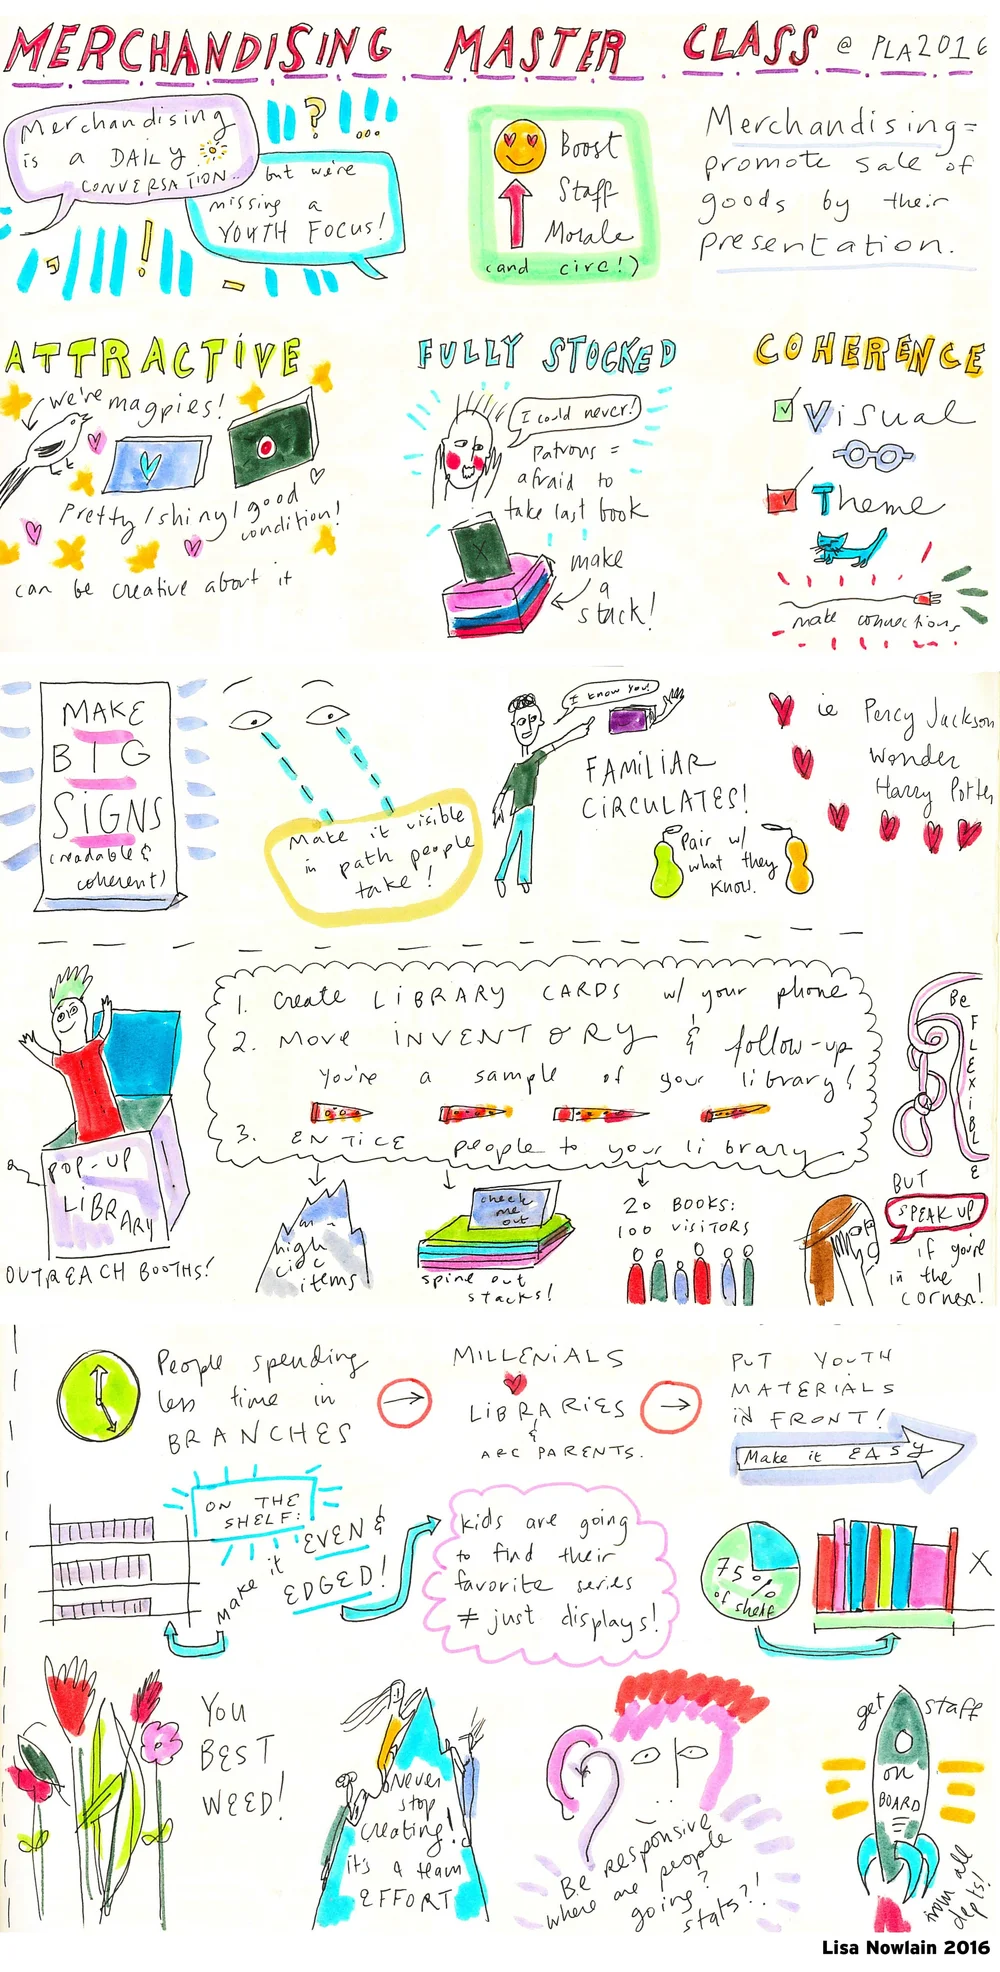 MERCHANDISING MASTER CLASS @ PLA2016
Merchandising
is a DAILY
CONVERSATION...
but we're
missing a
YOUTH FOCUS!
Boost
Staff
Morale
(and circ!)
Merchandising=
promote sale of
goods by their
presentation.
ATTRACTIVE
we're magpies!
Pretty/shiny/good
condition!
can be creative about it
FULLY STOCKED
I could never!
patrons =
afraid to
take last book
make
a
stack!
COHERENCE
Visual
Theme
make connections
MAKE
BIG
SIGNS
(readable &
coherent)
Make it visible
in path people
take!
I know you!
FAMILIAR
CIRCULATES!
Pair w/
what they
know.
ie Percy Jackson
Wonder
Harry Potter
POP-UP
LIBRARY
OUTREACH BOOTHS!
1. Create LIBRARY CARDS w/ your phone
2. Move INVENTORY & follow-up
You're a sample of your library!
3. ENTICE people to your library
high
circ
items
check
me
out
spine out
stacks!
20 BOOKS:
100 VISITORS
Be
FLEXIBLE
BUT
SPEAK UP
if you're
in the
corner!
People spending
less time in
BRANCHES
MILLENIALS
LIBRARIES
&
ARE PARENTS.
PUT YOUTH
MATERIALS
IN FRONT!
Make it EASY
ON THE
SHELF:
make it
EVEN &
EDGED!
kids are going
to find their
favorite series
≠ just displays!
75%
of shelf
X
YOU
BEST
WEED!
Never
stop
creating!
it's a team
EFFORT
Be responsive
where are people
going?
stats?!
get staff
on
BOARD
from all
depts!
Lisa Nowlain 2016